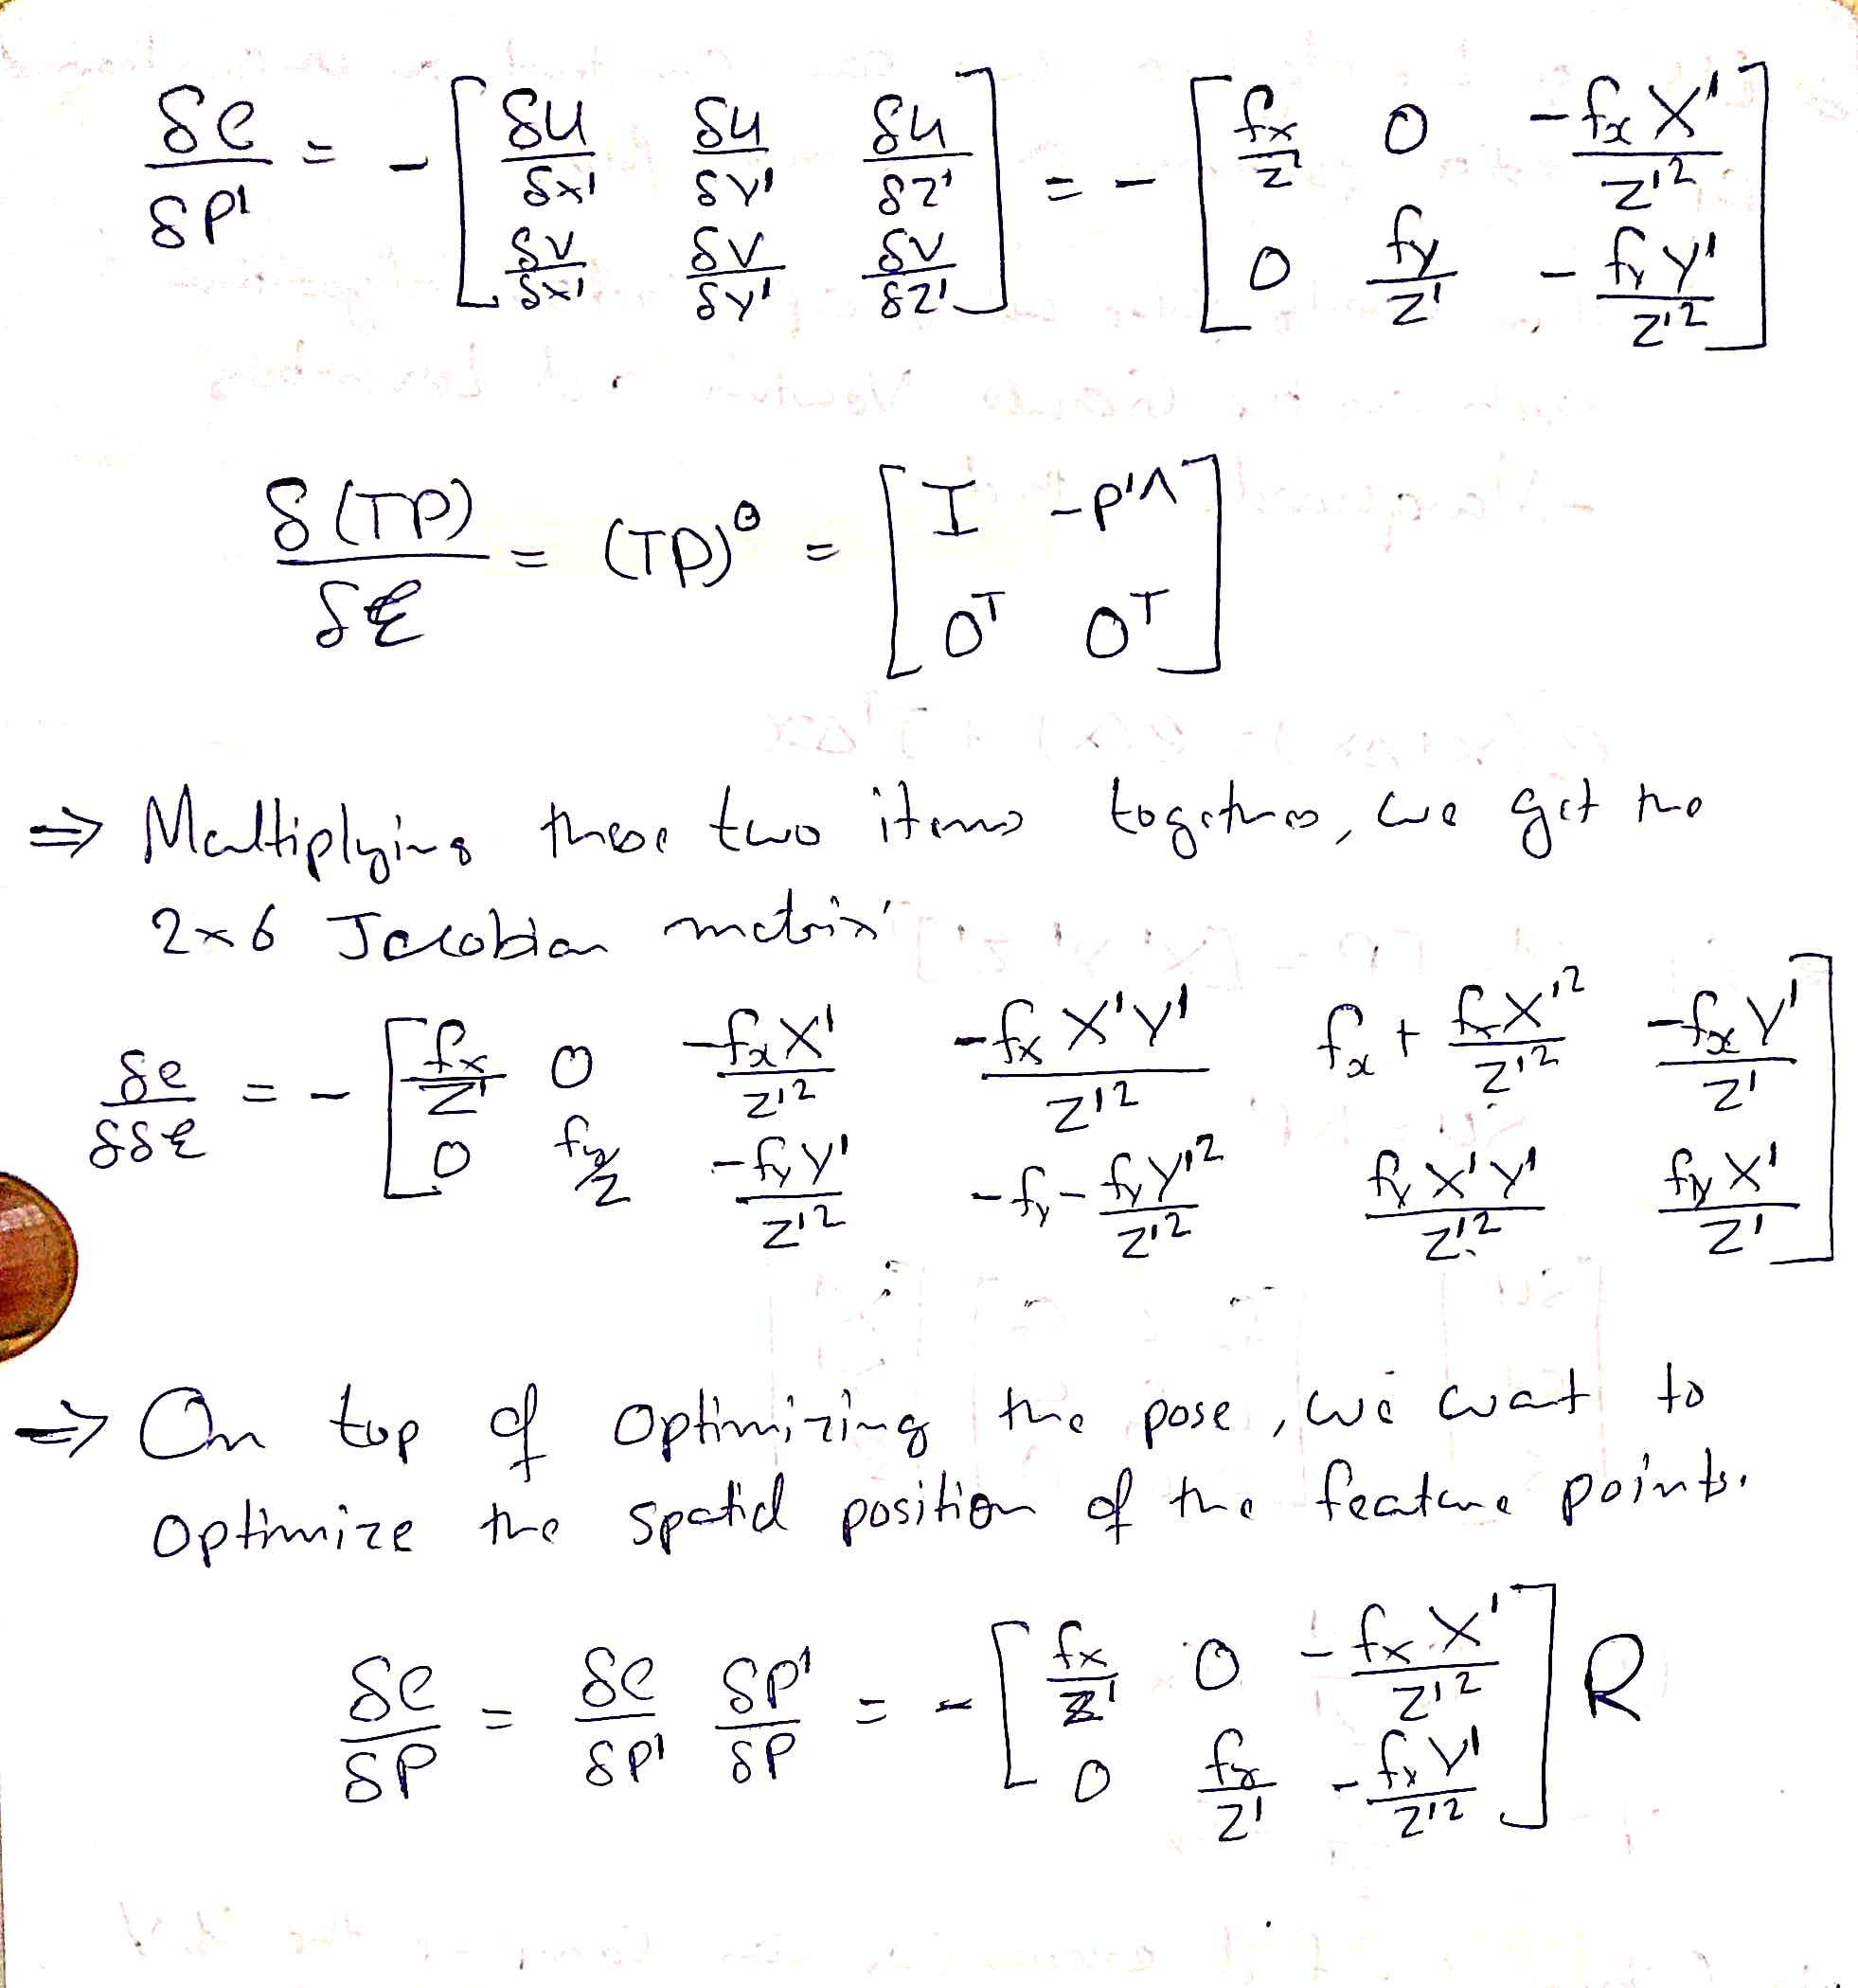 δe/δP' = - [ δu/δX' δu/δY' δu/δZ' ; δv/δX' δv/δY' δv/δZ' ] = - [ fx/Z' 0 -fxX'/Z'² ; 0 fy/Z' -fyY'/Z'² ]
δ(TP)/δξ = (TP)^⊙ = [ I -P'^ ; 0ᵀ 0ᵀ ]
⇒ Multiplying these two items together, we get the
2×6 Jacobian matrix
δe/δδξ = - [ fx/Z' 0 -fxX'/Z'² -fxX'Y'/Z'² fx + fxX'²/Z'² -fxY'/Z' ; 0 fy/Z -fyY'/Z'² -fy - fyY'²/Z'² fyX'Y'/Z'² fyX'/Z' ]
⇒ On top of optimizing the pose, we want to
optimize the spatial position of the feature points.
δe/δP = δe/δP' δP'/δP = - [ fx/Z' 0 -fxX'/Z'² ; 0 fy/Z' -fyY'/Z'² ] R